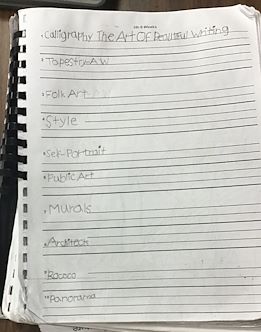 Calligraphy The Art Of Beautiful Writing
Tapestry-A W
Folk Art
Style
Self-Portrait
Public Art
Murals
Architect
Rococo
Panorama